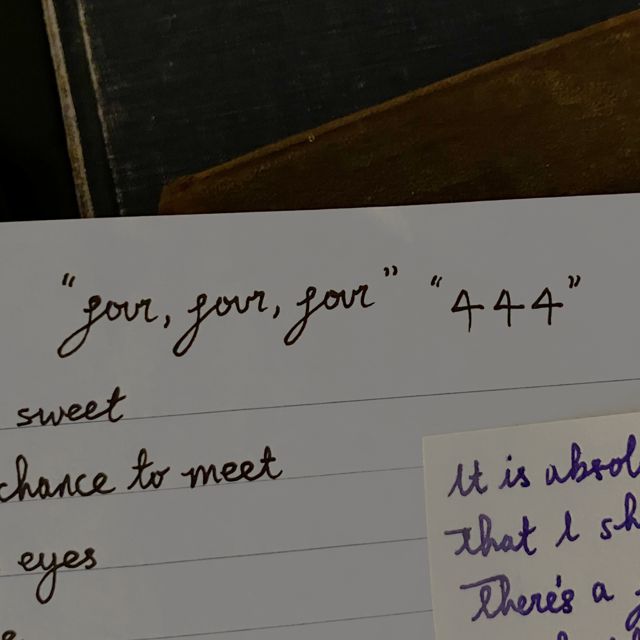 “four, four, four” “444”
sweet
chance to meet
eyes
It is absol
that I sh
There's a